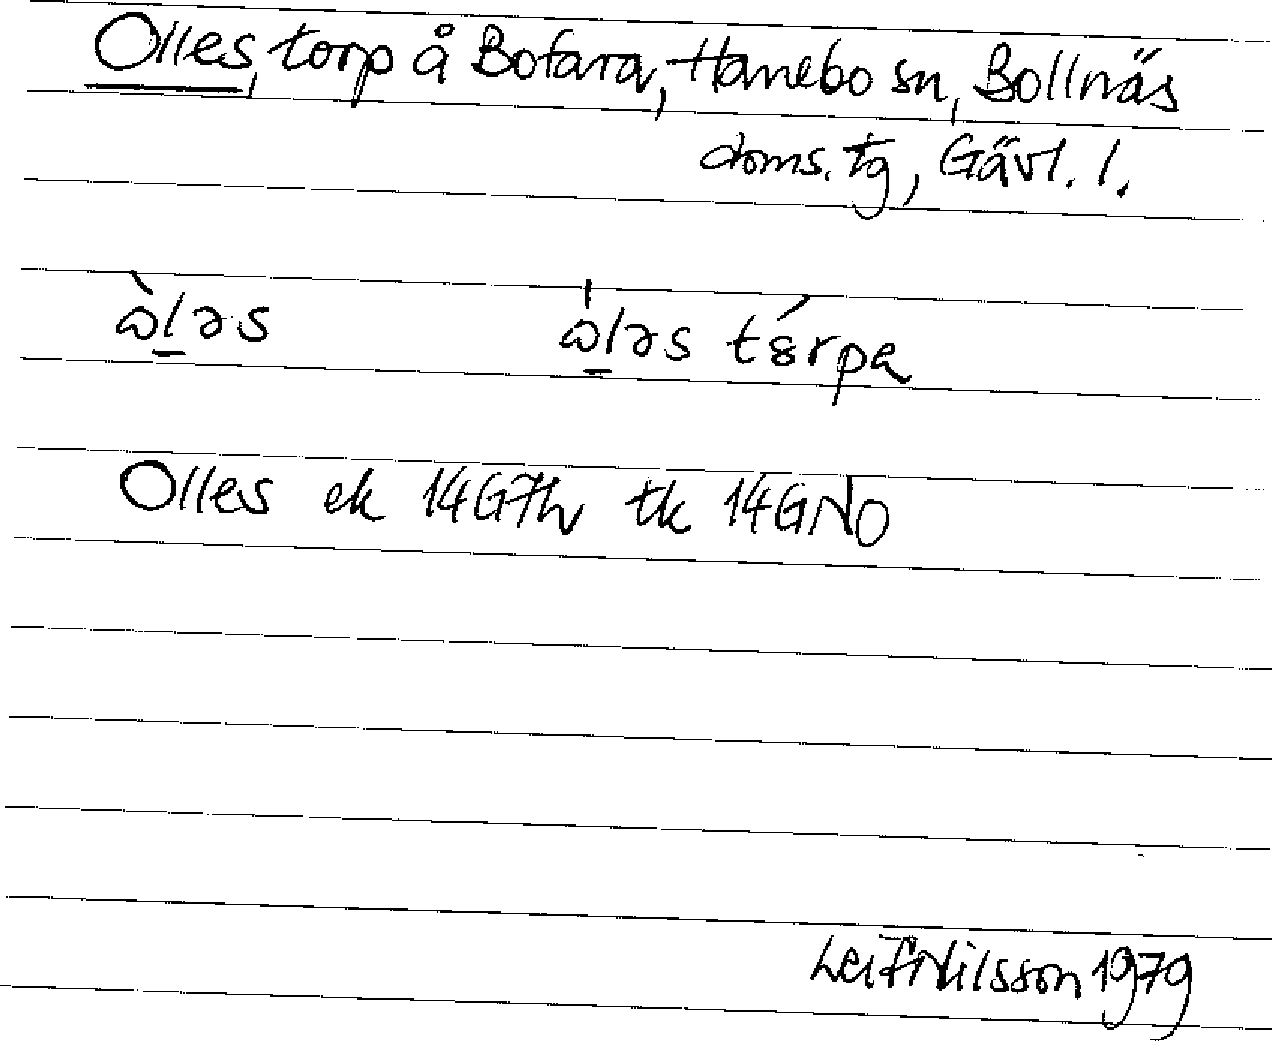 Olles, torp å Bofara, Hanebo sn, Bollnäs
doms. tg, Gävl. l.
ὼl̲əs ὼl̲əs tɤ́rpa
Olles ek 14G7h tk 14GNO
Leif Nilsson 1979